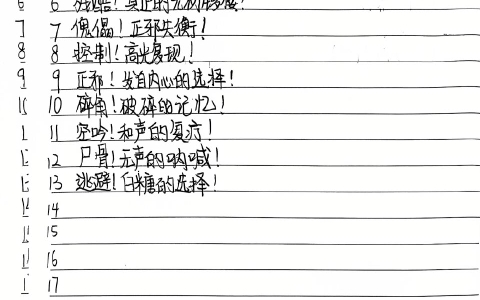 6 6 残酷！真正的
7 7 傀儡！正邪失衡！
8 8 控制！高光复现！
9 9 正邪！发自内心的选择！
10 10 碎角！破碎的记忆！
1 11 空吟！和声的复疗！
12 尸骨！无声的呐喊！
13 逃避！白糖的选择！
14
15
16
1 17